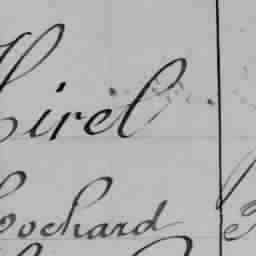 Hirel
Cochard